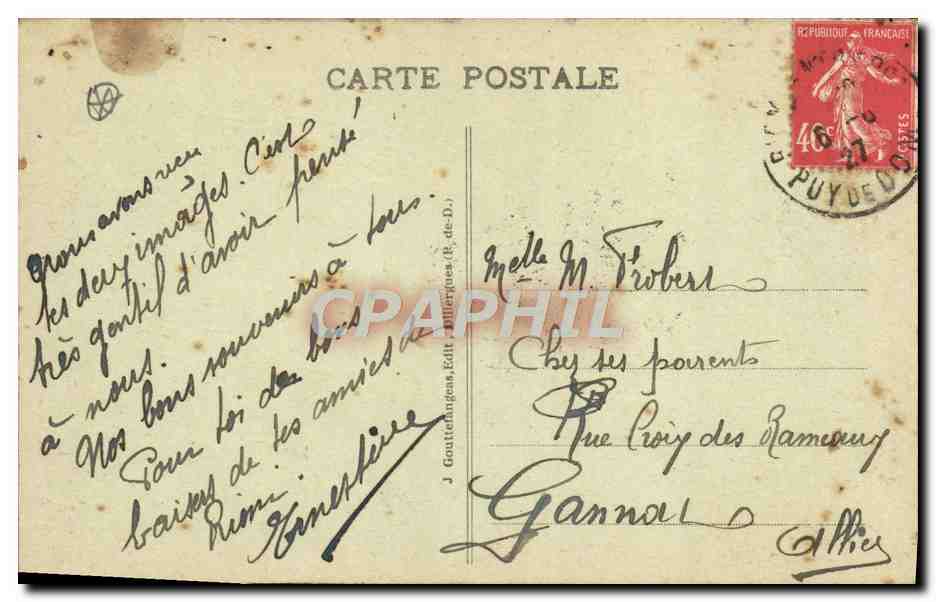 CARTE POSTALE
RÉPUBLIQUE FRANÇAISE
40c
POSTES
6 - 2
27
PUY DE DOME
Nous avons vu
tes deux images. C'est
très gentil d'avoir pensé
à nous.
Nos bons souvenirs à tous.
Pour toi de bons
baisers de tes amies de
Riom.
Ernestine
J Gouttefangeas, Edit., Olliergues (P.-de-D.)
CPAPHIL
Melle M. Frobert
Chez ses parents
Rue Croix des Rameaux
Gannat
Allier